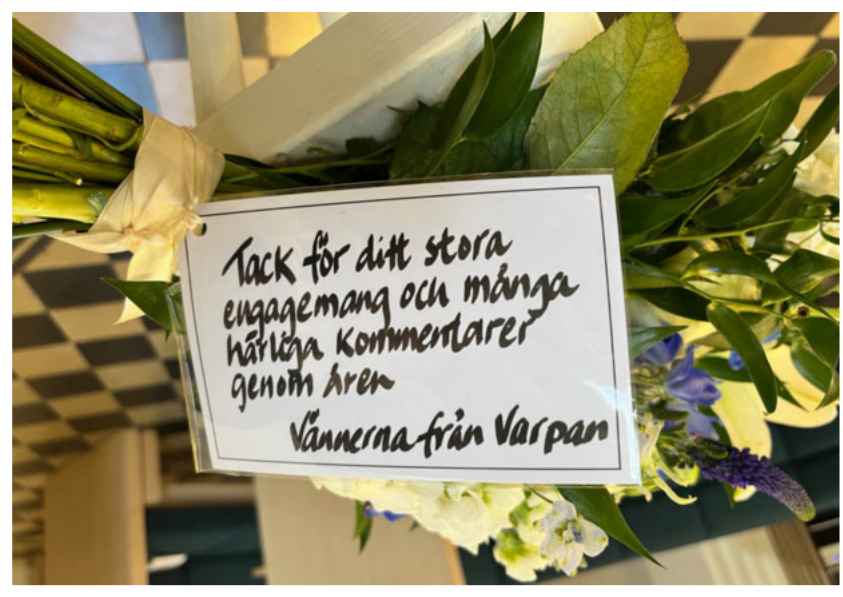 Tack för ditt stora
engagemang och många
härliga kommentarer
genom åren
Vännerna från Varpan